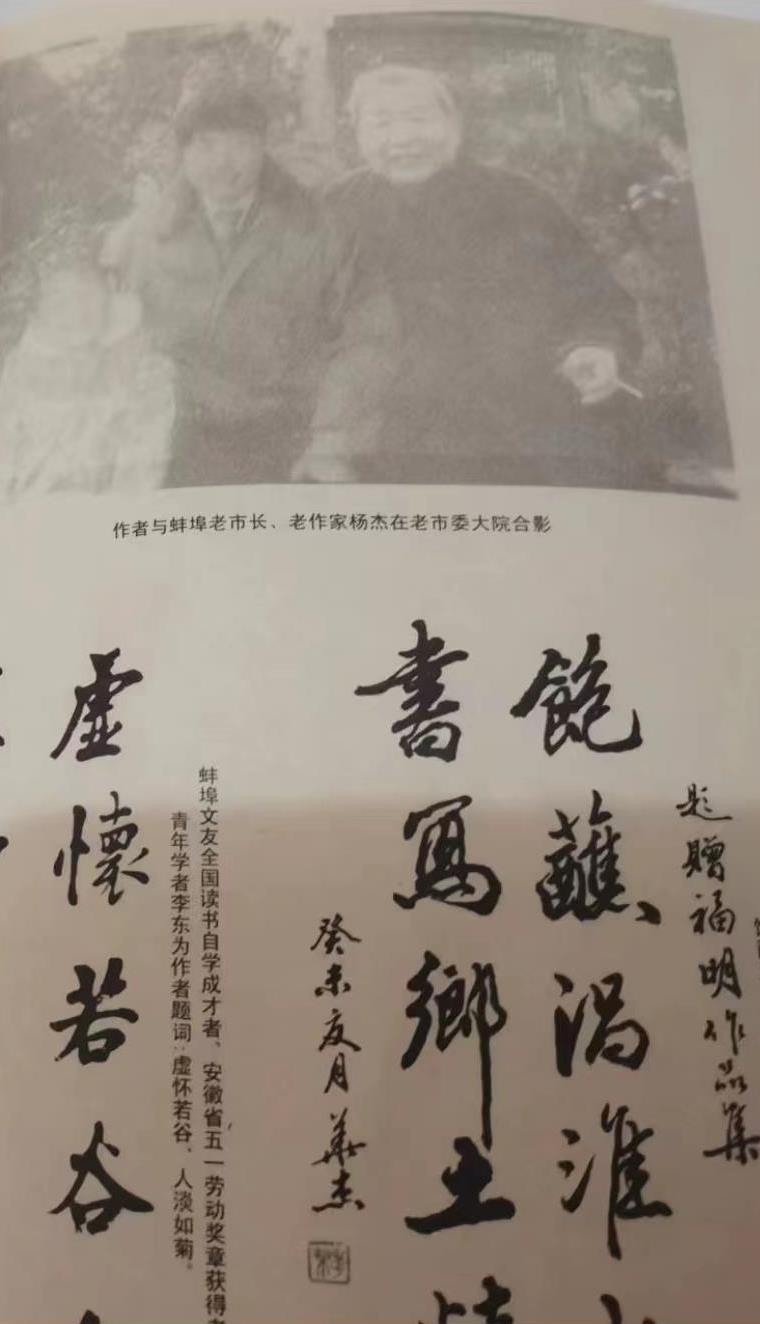 作者与蚌埠老市长、老作家杨杰在老市委大院合影
题赠福明作品集
飽蘸涡淮
書寫鄉土
癸未夏月
蚌埠文友全国读书自学成才者、安徽省五一劳动奖章获得
青年学者李东为作者题词:虚怀若谷、人淡如菊。
虚懷若谷